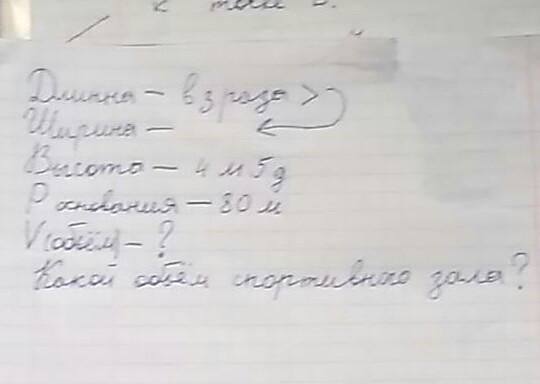 к
Длинна — в 3 раза >
Ширина —
Высота — 4 м 5 д
P основания — 80 м
V (объём) — ?
Какой объём спортивного зала?